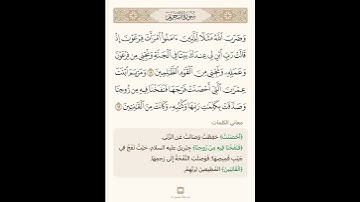 سُورَةُ التَّحْرِيمِ
وَضَرَبَ اللَّهُ مَثَلًا لِّلَّذِينَ ءَامَنُوا امْرَأَتَ فِرْعَوْنَ إِذْ
قَالَتْ رَبِّ ابْنِ لِي عِندَكَ بَيْتًا فِي الْجَنَّةِ وَنَجِّنِي مِن فِرْعَوْنَ
وَعَمَلِهِ وَنَجِّنِي مِنَ الْقَوْمِ الظَّالِمِينَ ١١ وَمَرْيَمَ ابْنَتَ
عِمْرَانَ الَّتِي أَحْصَنَتْ فَرْجَهَا فَنَفَخْنَا فِيهِ مِن رُّوحِنَا
وَصَدَّقَتْ بِكَلِمَاتِ رَبِّهَا وَكُتُبِهِ وَكَانَتْ مِنَ الْقَانِتِينَ ١٢
معاني الكلمات
﴿أَحْصَنَتْ﴾ حَفِظَتْ وَصَانَتْ عَنِ الزِّنَى.
﴿فَنَفَخْنَا فِيهِ مِن رُّوحِنَا﴾ جِبْرِيلَ عليه السلام، حَيْثُ نَفَخَ فِي
جَيْبِ قَمِيصِهَا؛ فَوَصَلَتِ النَّفْخَةُ إِلَى رَحِمِهَا.
﴿الْقَانِتِينَ﴾ المُطِيعِينَ لِرَبِّهِمْ.